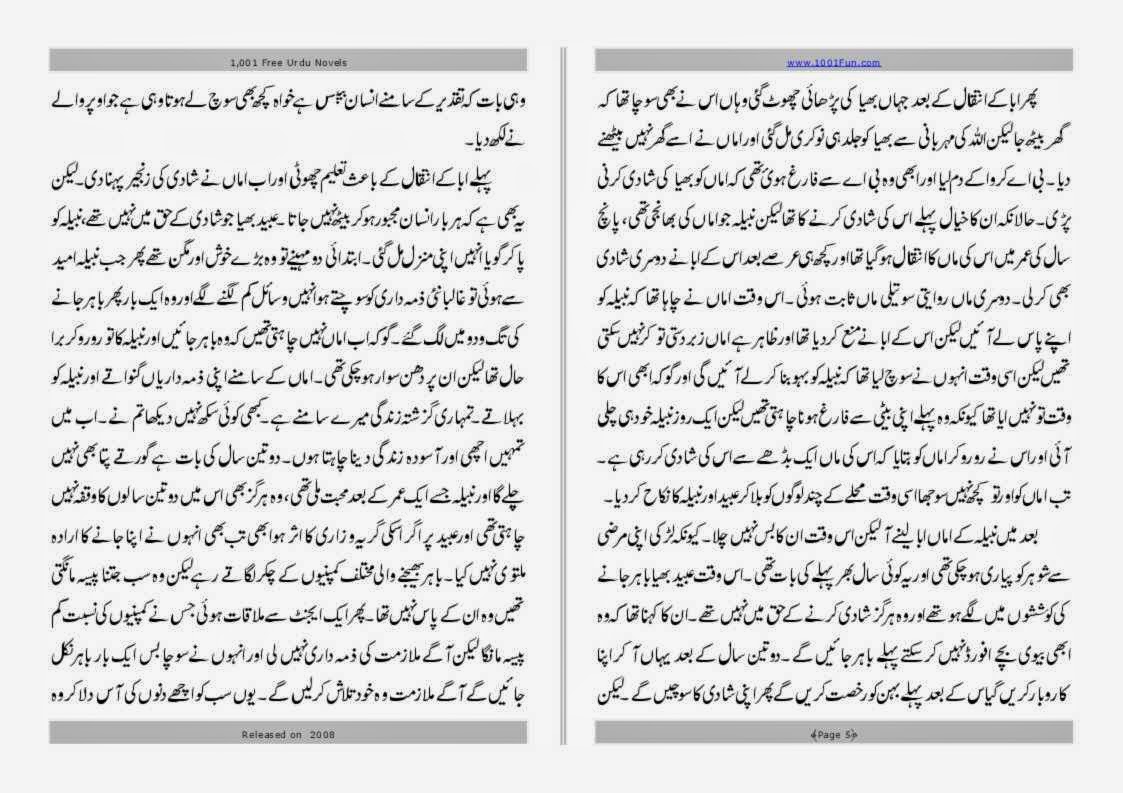 www.1001Fun.com
پھر ابا کے انتقال کے بعد جہاں بھیا کی پڑھائی چھوٹ گئی وہاں اس نے بھی سوچا تھا کہ
گھر بیٹھ جا لیکن اللہ کی مہربانی سے بھیا کو جلد ہی نوکری مل گئی اور اماں نے اسے گھر نہیں بیٹھنے
دیا ۔ بی اے کروا کے دم لیا اور ابھی وہ بی اے سے فارغ ہوئ تھی کہ اماں کو بھیا کی شادی کرنی
پڑی۔ حالانکہ ان کا خیال پہلے اس کی شادی کرنے کا تھا لیکن نبیلہ جو اماں کی بھانجی تھی، پانچ
سال کی عمر میں اس کی ماں کا انتقال ہو گیا تھا اور کچھ ہی عرصے بعد اس کے ابا نے دوسری شادی
بھی کر لی۔ دوسری ماں روایتی سوتیلی ماں ثابت ہوئی ۔ اس وقت اماں نے چاہا تھا کہ نبیلہ کو
اپنے پاس لے آئیں لیکن اس کے ابا نے منع کر دیا تھا اور ظاہر ہے اماں زبردستی تو کر نہیں سکتی
تھیں لیکن اسی وقت انہوں نے سوچ لیا تھا کہ نبیلہ کو بہو بنا کر لے آئیں گی اور گو کہ ابھی اس کا
وقت تو نہیں ایا تھا کیونکہ وہ پہلے اپنی بیٹی سے فارغ ہونا چاہتی تھیں لیکن ایک روز نبیلہ خود ہی چلی
آئی اور اس نے رو رو کر اماں کو بتایا کہ اس کی ماں ایک بڈھے سے اس کی شادی کر رہی ہے ۔
تب اماں کو اور تو کچھ نہیں سوجھا اسی وقت محلے کے چند لوگوں کو بلا کر عبید اور نبیلہ کا نکاح کر دیا ۔
بعد میں نبیلہ کے اماں ابا لینے آ لیکن اس وقت ان کا بس نہیں چلا ۔ کیونکہ لڑکی اپنی مرضی
سے شوہر کو پیاری ہو چکی تھی اور یہ کوئی سال بھر پہلے کی بات تھی ۔ اس وقت عبید بھیا باہر جانے
کی کوششوں میں لگے ہو تھے اور وہ ہرگز شادی کرنے کے حق میں نہیں تھے ۔ ان کا کہنا تھا کہ وہ
ابھی بیوی بچے افورڈ نہیں کر سکتے پہلے باہر جائیں گے ۔ دو تین سال کے بعد یہاں آ کر اپنا
کاروبار کریں گیاس کے بعد پہلے بہن کو رخصت کریں گے پھر اپنی شادی کا سوچیں گے ۔ لیکن
﴾Page 5﴿
1,001 Free Urdu Novels
وہی بات کہ تقدیر کے سامنے انسان بے بس ہے خواہ کچھ بھی سوچ لے ہوتا وہی ہے جو اوپر والے
نے لکھ دیا ۔
پہلے ابا کے انتقال کے باعث تعلیم چھوٹی اور اب اماں نے شادی کی زنجیر پہنا دی۔ لیکن
یہ بھی ہے کہ ہر بار انسان مجبور ہو کر بیٹھ نہیں جاتا ۔ عبید بھیا جو شادی کے حق میں نہیں تھے، نبیلہ کو
پا کر گویا انہیں اپنی منزل مل گئی ۔ ابتدائی دو مہینے تو وہ بڑے خوش اور مگن تھے پھر جب نبیلہ امید
سے ہوئی تو غالبا نئی ذمہ داری کو سوچتے ہو انہیں وسائل کم لگنے لگے اور وہ ایک بار پھر باہر جانے
کی تگ و دو میں لگ گئے ۔ گو کہ اب اماں نہیں چاہتی تھیں کہ وہ باہر جائیں اور نبیلہ کا تو رو رو کر برا
حال تھا لیکن ان پر دھن سوار ہو چکی تھی۔ اماں کے سامنے اپنی ذمہ داریاں گنواتے اور نبیلہ کو
بہلاتے ۔ تمہاری گزشتہ زندگی میرے سامنے ہے ۔ کبھی کوئی سکھ نہیں دیکھا تم نے ۔ اب میں
تمہیں اچھی اور آسودہ زندگی دینا چاہتا ہوں ۔ دو تین سال کی بات ہے گورتے پتا بھی نہیں
چلے گا اور نبیلہ جسے ایک عمر کے بعد محبت ملی تھی، وہ ہرگز بھی اس میں دو تین سالوں کا وقفہ نہیں
چاہتی تھی اور عبید پر اگر اسکی گریہ و زاری کا اثر ہوا بھی تب بھی انہوں نے اپنا جانے کا ارادہ
ملتوی نہیں کیا۔ باہر بھیجنے والی مختلف کمپنیوں کے چکر لگاتے رہے لیکن وہ سب جتنا پیسہ مانگتی
تھیں وہ ان کے پاس نہیں تھا ۔ پھر ایک ایجنٹ سے ملاقات ہوئی جس نے کمپنیوں کی نسبت کم
پیسہ مانگا لیکن آگے ملازمت کی ذمہ داری نہیں لی اور انہوں نے سوچا بس ایک بار باہر نکل
جائیں گے آگے ملازمت وہ خود تلاش کر لیں گے ۔ یوں سب کو اچھے دنوں کی آس دلا کر وہ
Released on 2008